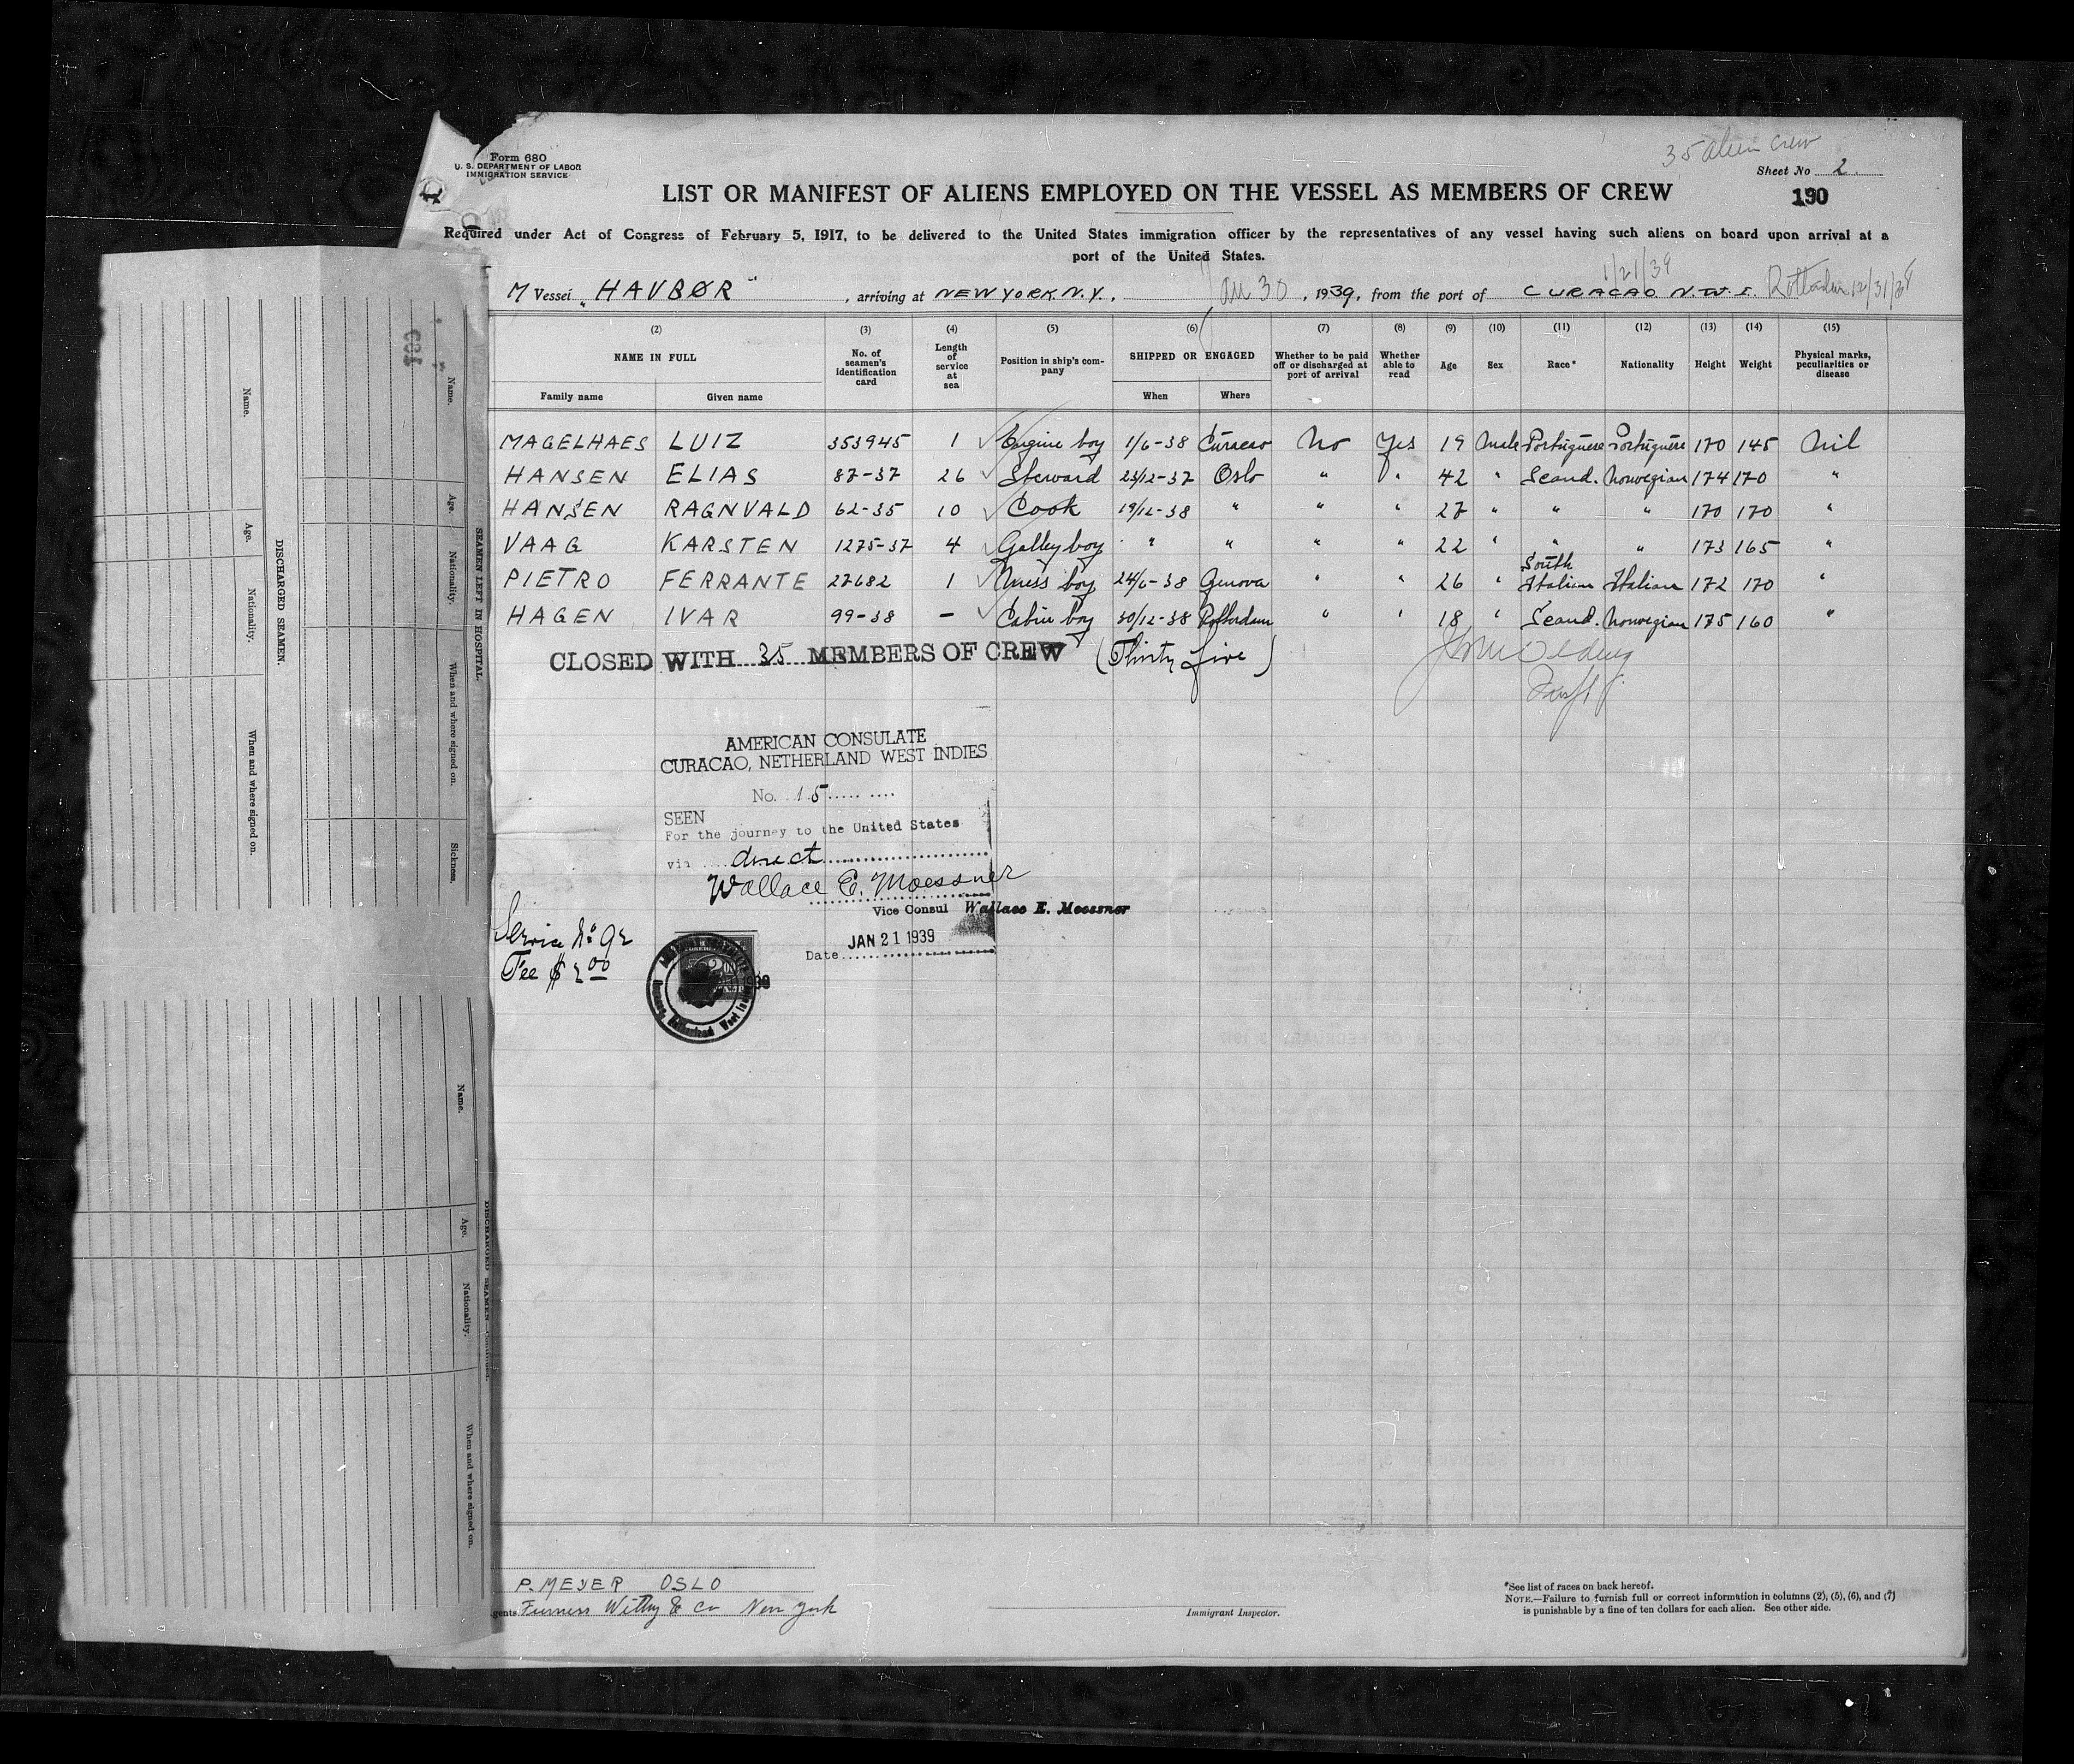 35 alien crew
Form 680
U. S. DEPARTMENT OF LABOR
IMMIGRATION SERVICE
Sheet No 2
LIST OR MANIFEST OF ALIENS EMPLOYED ON THE VESSEL AS MEMBERS OF CREW
190
Required under Act of Congress of February 5, 1917, to be delivered to the United States immigration officer by the representatives of any vessel having such aliens on board upon arrival at a
port of the United States.
1/21/39
M Vessel "HAVBØR", arriving at NEW YORK N.Y., Jan 30, 1939, from the port of CURACAO N.W.I. Rotterdam 12/31/38
(2) (3) (4) (5) (6) (7) (8) (9) (10) (11) (12) (13) (14) (15)
NAME IN FULL No. of seamen's identification card Length of service at sea Position in ship's company SHIPPED OR ENGAGED Whether to be paid off or discharged at port of arrival Whether able to read Age Sex Race* Nationality Height Weight Physical marks, peculiarities or disease
Family name Given name When Where
MAGELHAES LUIZ 353945 1 Engine boy 1/6-38 Curacao No Yes 19 Male Portuguese Portuguese 170 145 Nil
HANSEN ELIAS 87-37 26 Steward 23/12-37 Oslo " " 42 " Scand. Norwegian 174 170 "
HANSEN RAGNVALD 62-35 10 Cook 19/12-38 " " " 27 " " " 170 170 "
VAAG KARSTEN 1275-37 4 Galley boy " " " " 22 " " " 173 165 "
PIETRO FERRANTE 27682 1 Mess boy 24/6-38 Genova " " 26 " South Italian Italian 172 170 "
HAGEN IVAR 99-38 - Cabin boy 30/12-38 Rotterdam " " 18 " Scand. Norwegian 175 160 "
CLOSED WITH 35 MEMBERS OF CREW (Thirty five)
AMERICAN CONSULATE
CURACAO, NETHERLAND WEST INDIES
No. 15
SEEN
For the journey to the United States
via direct
Wallace E. Moessner
Vice Consul Wallace E. Moessner
JAN 21 1939
Date
Service No 92
Fee $ 2.00
P. MEYER OSLO
Agents Furness Withy & Co New York
Immigrant Inspector.
*See list of races on back hereof.
NOTE.—Failure to furnish full or correct information in columns (2), (5), (6), and (7)
is punishable by a fine of ten dollars for each alien. See other side.
SEAMEN LEFT IN HOSPITAL.
Name.
Age.
Nationality.
When and where signed on.
Sickness.
DISCHARGED SEAMEN.
Name.
Age.
Nationality.
When and where signed on.
DISCHARGED SEAMEN—Continued.
Name.
Age.
Nationality.
When and where signed on.